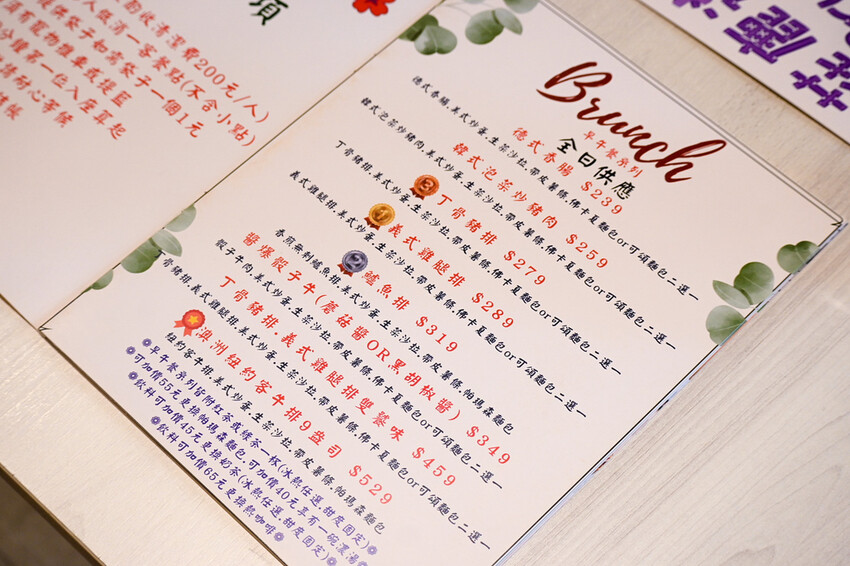 項
面收清潔費200元/人)
人低消一客餐點(不含小點)
提供袋子如需袋子一個1元
有寵物推車或提籃
分鐘第一位入座算起
請耐心等候
Brunch
早午餐系列
全日供應
德式香腸 $239
德式香腸,美式炒蛋,生菜沙拉,帶皮薯條,佛卡夏麵包or可頌麵包二選一
韓式泡菜炒豬肉 $259
韓式泡菜炒豬肉,美式炒蛋,生菜沙拉,帶皮薯條,佛卡夏麵包or可頌麵包二選一
3 丁骨豬排 $279
丁骨豬排,美式炒蛋,生菜沙拉,帶皮薯條,佛卡夏麵包or可頌麵包二選一
1 義式雞腿排 $289
義式雞腿排,美式炒蛋,生菜沙拉,帶皮薯條,佛卡夏麵包or可頌麵包二選一
2 鱸魚排 $319
香煎無刺鱸魚排,美式炒蛋,生菜沙拉,帶皮薯條,佛卡夏麵包or可頌麵包二選一
醬爆骰子牛(蘑菇醬OR黑胡椒醬) $349
骰子牛肉,美式炒蛋,生菜沙拉,帶皮薯條,帕瑪森麵包
丁骨豬排.義式雞腿排雙蔘味 $459
丁骨豬排,義式雞腿排,美式炒蛋,生菜沙拉,帶皮薯條,佛卡夏麵包or可頌麵包二選一
澳洲紐約客牛排9盎司 $529
紐約客牛排,美式炒蛋,生菜沙拉,帶皮薯條,帕瑪森麵包
早午餐系列皆附紅茶或綠茶一杯(冰熱任選,甜度固定)
可加價55元更換帕瑪森麵包,可加價40元享有一碗濃湯
飲料可加價45元更換奶茶(冰熱任選,甜度固定)
飲料可加價65元更換熱咖啡